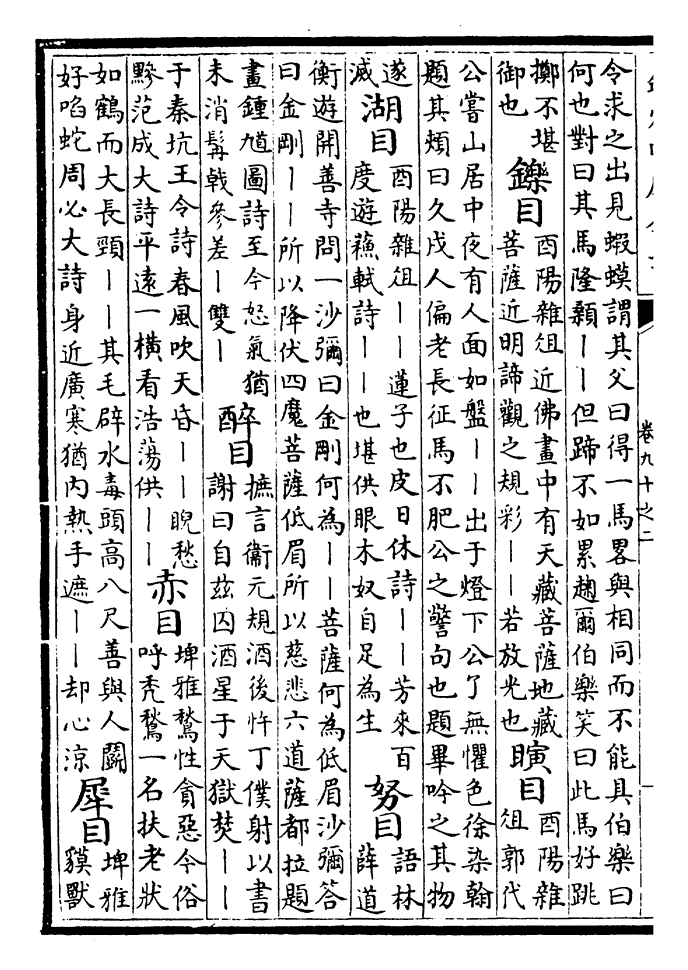 卷九十之二
令求之出見蝦蟆謂其父曰得一馬畧與相同而不能具伯樂曰
何也對曰其馬隆顙丨丨但蹄不如累趜爾伯樂笑曰此馬好跳
擲不堪
御也
鑠目
酉陽雜俎近佛畫中有天藏菩薩地藏
菩薩近明諦觀之規彩丨丨若放光也
瞚目
酉陽雜
俎郭代
公嘗山居中夜有人面如盤丨丨出于燈下公了無懼色徐染翰
題其頰曰久戍人偏老長征馬不肥公之警句也題畢吟之其物
遂
滅
湖目
酉陽雜俎丨丨蓮子也皮日休詩丨丨芳來百
度遊蘓軾詩丨丨也堪供眼木奴自足為生
努目
語林
薛道
衡遊開善寺問一沙彌曰金剛何為丨丨菩薩何為低眉沙彌答
曰金剛丨丨所以降伏四魔菩薩低眉所以慈悲六道薩都拉題
畫鍾馗圖詩至今怒氣猶
未消髯戟參差丨雙丨
醉目
摭言衞元規酒後忤丁僕射以書
謝曰自兹囚酒星于天獄焚丨丨
于秦坑王令詩春風吹天昏丨丨睨愁
黲范成大詩平遠一横看浩蕩供丨丨
赤目
埤雅鶖性貪惡今俗
呼禿鶖一名扶老狀
如鶴而大長頸丨丨其毛辟水毒頭高八尺善與人鬬
好啗蛇周必大詩身近廣寒猶内熱手遮丨丨却心涼
犀目
埤雅
貘獸